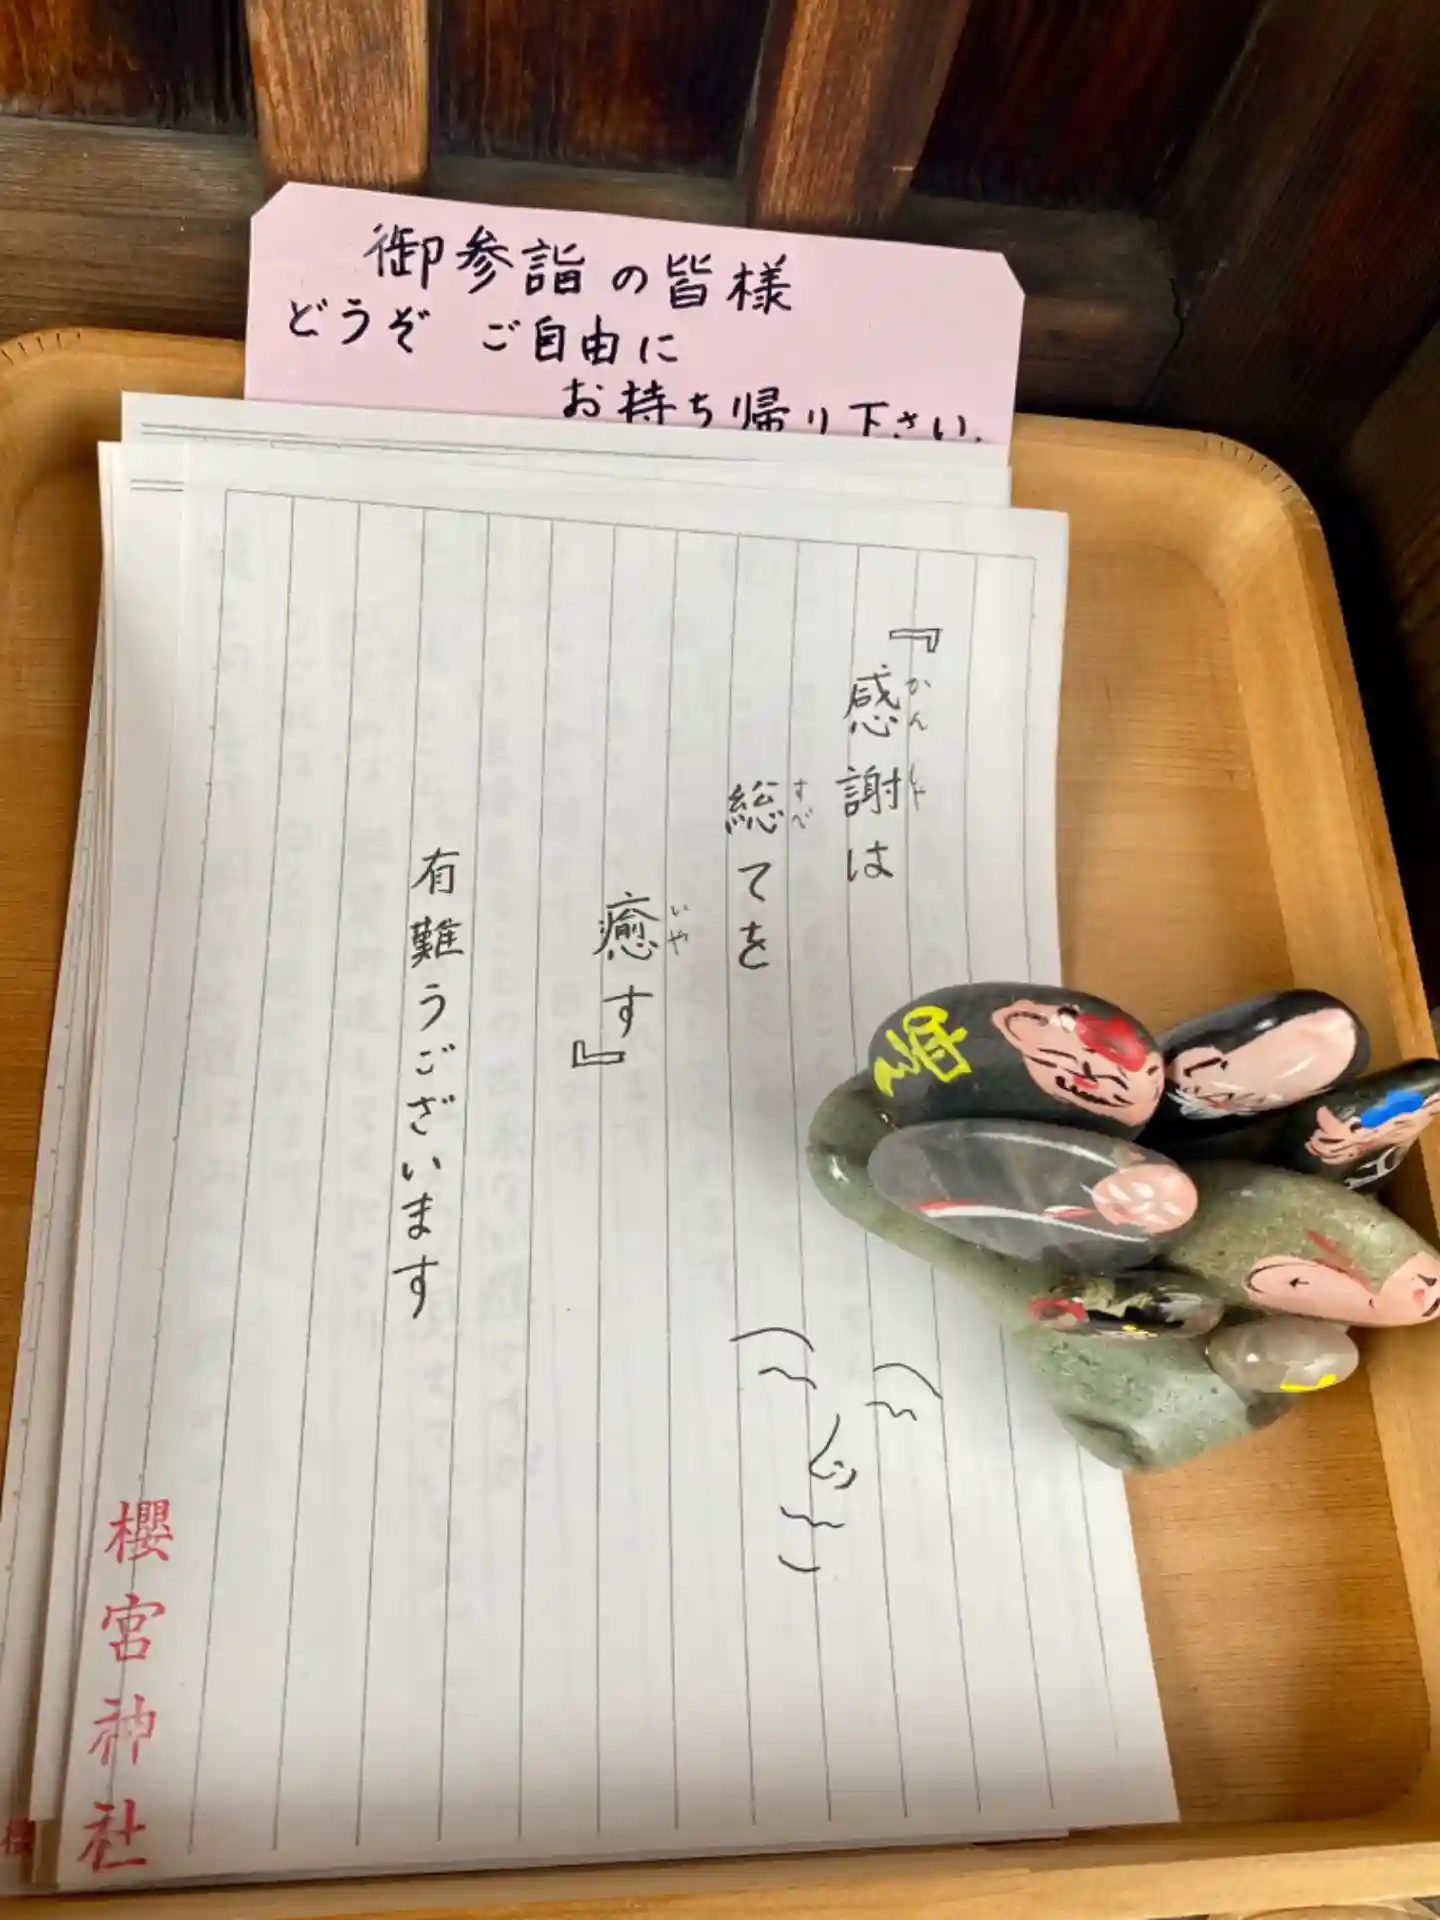 御参詣の皆様
どうぞ ご自由に
お持ち帰り下さい、
『感謝は
かんしゃ
総てを
すべ
癒す』
いや
有難うございます
櫻宮神社